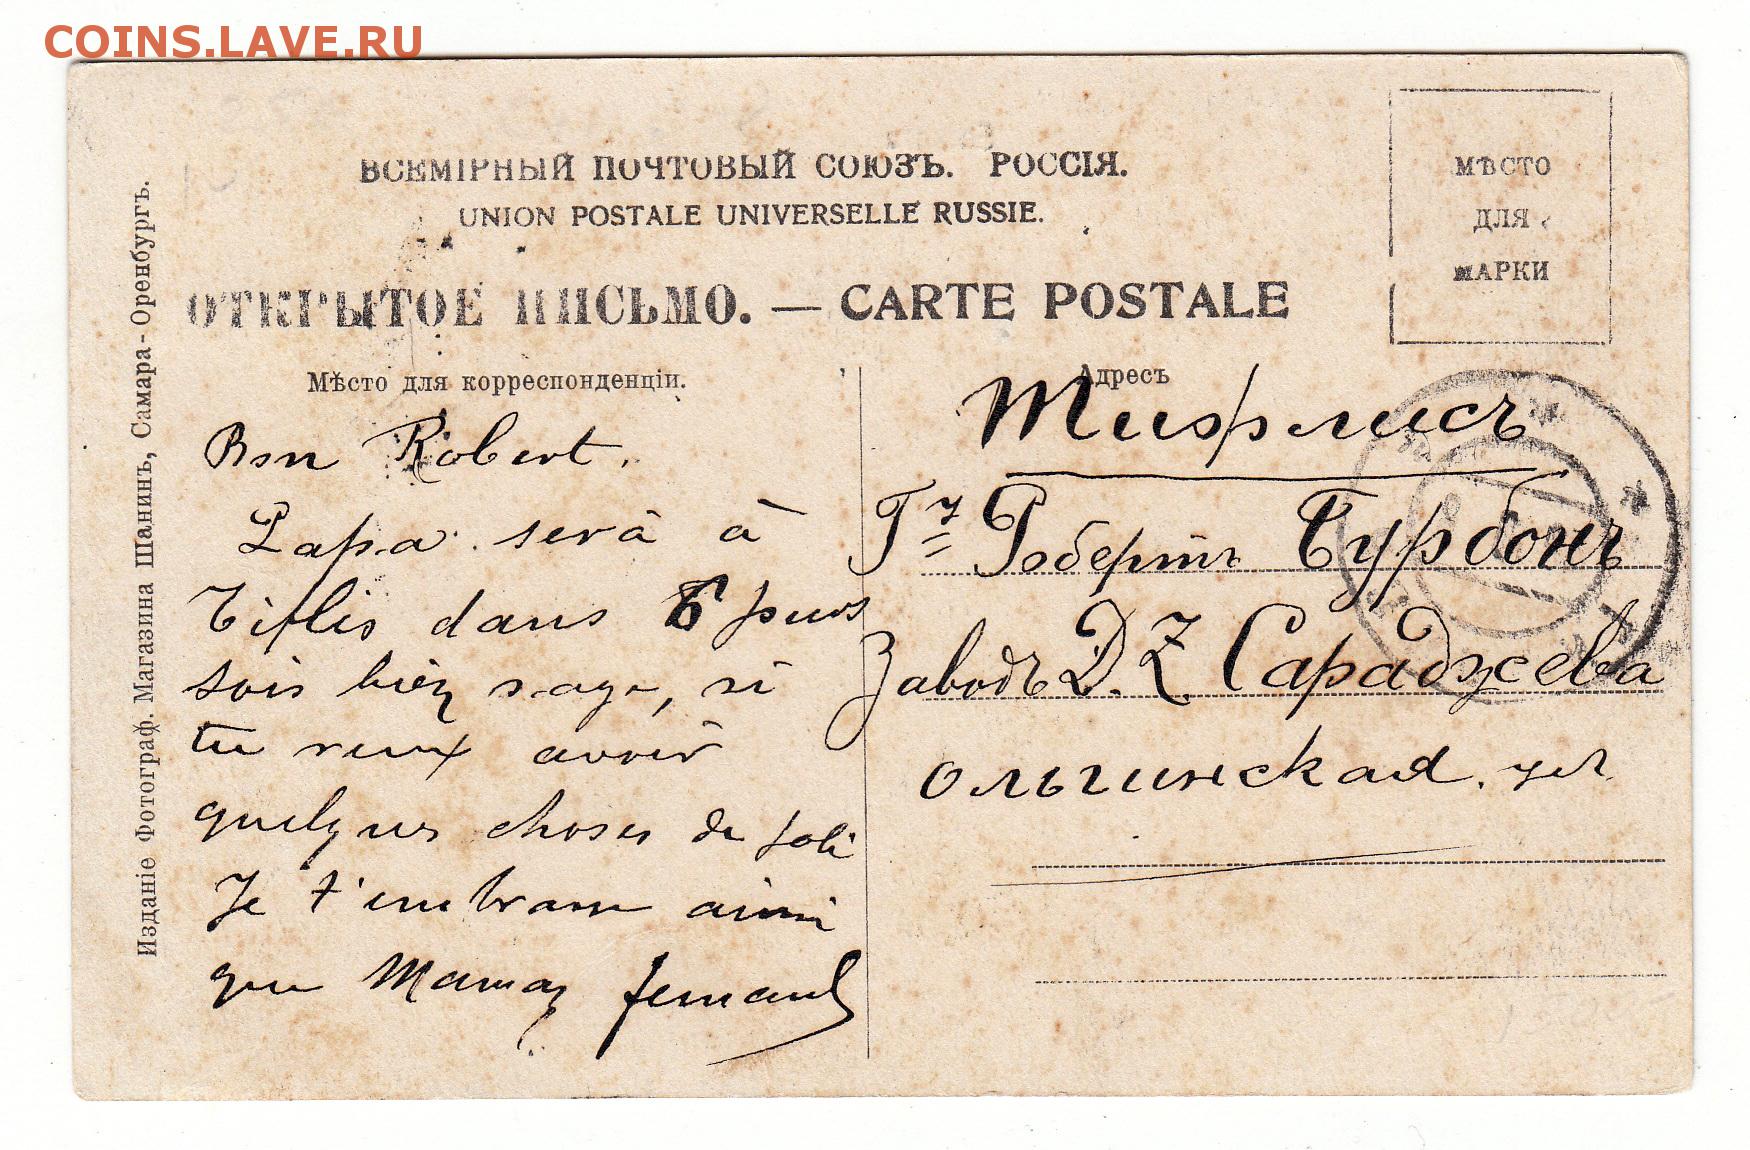 COINS.LAVE.RU
ВСЕМІРНЫЙ ПОЧТОВЫЙ СОЮЗЪ. РОССІЯ.
UNION POSTALE UNIVERSELLE RUSSIE.
ОТКРЫТОЕ ПИСЬМО. — CARTE POSTALE
МѢСТО
ДЛЯ
МАРКИ
Мѣсто для корреспонденціи.
Адресъ
Издание Фотограф. Магазина Шанинъ, Самара-Оренбургъ.
Bon Robert.
Papa sera à
Tiflis dans 6 jours
sois bien sage, si
tu veux avoir
quelques choses de joli
Je t'embrasse ainsi
que Maman Fernand
Тифлисъ
Гъ Робертъ Бурбонъ
Заводъ Д. Z Сараджева
Ольгинская. ул